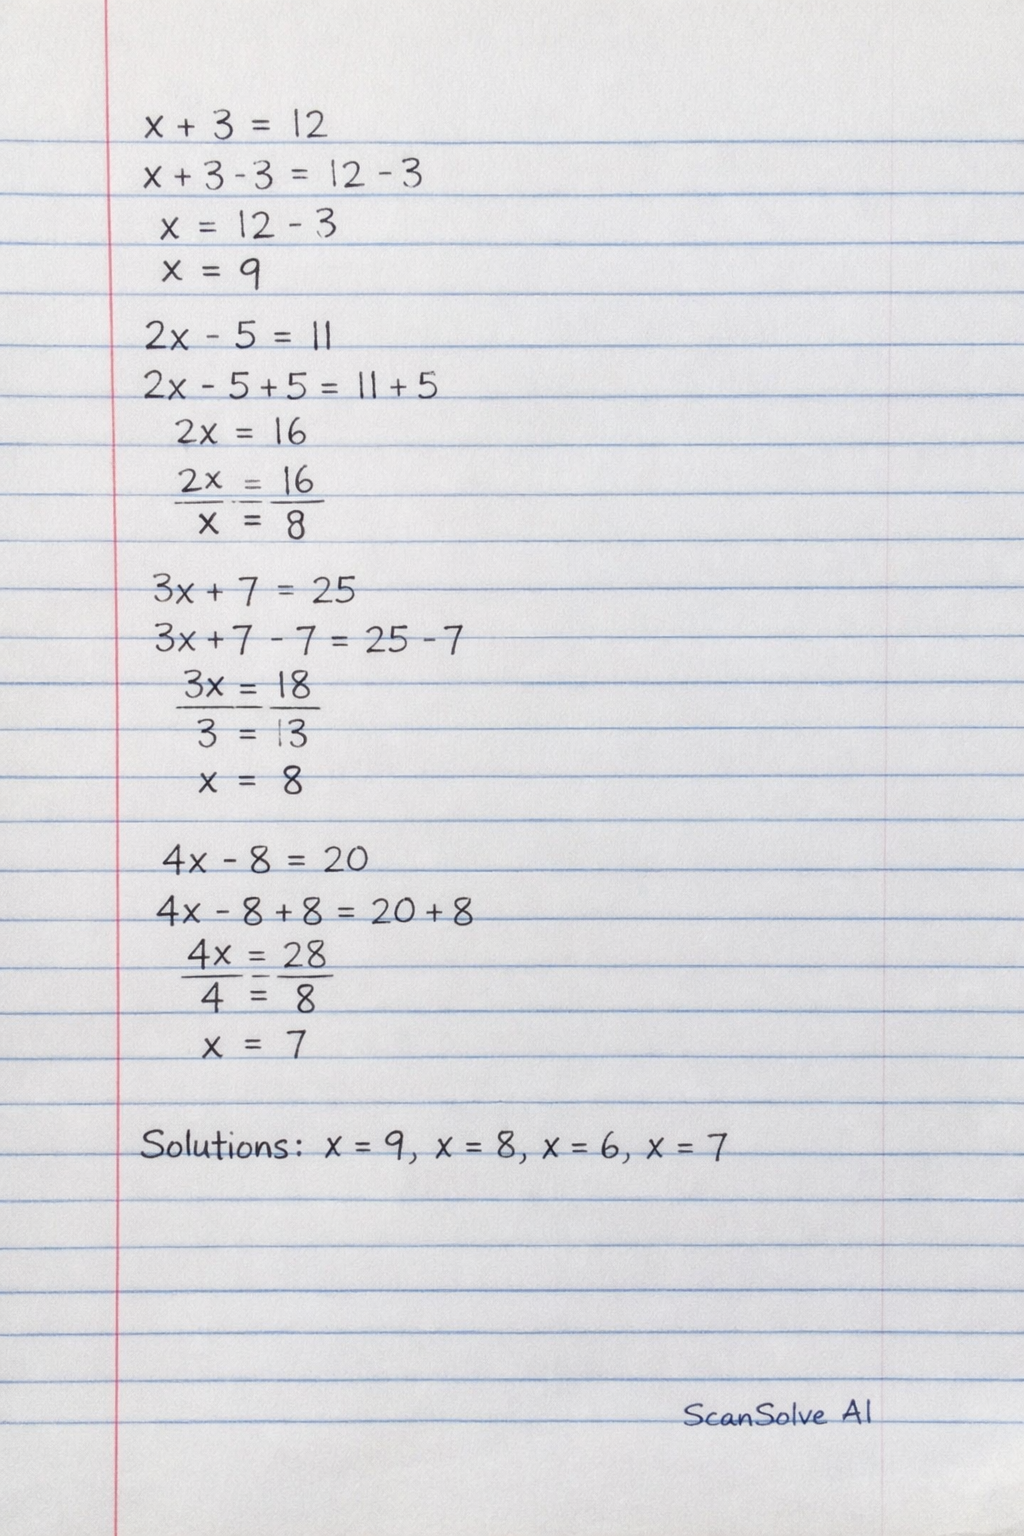 x + 3 = 12
x + 3 - 3 = 12 - 3
x = 12 - 3
x = 9
2x - 5 = 11
2x - 5 + 5 = 11 + 5
2x = 16
2x = 16
x = 8
3x + 7 = 25
3x + 7 - 7 = 25 - 7
3x = 18
3 = 13
x = 8
4x - 8 = 20
4x - 8 + 8 = 20 + 8
4x = 28
4 = 8
x = 7
Solutions: x = 9, x = 8, x = 6, x = 7
ScanSolve AI